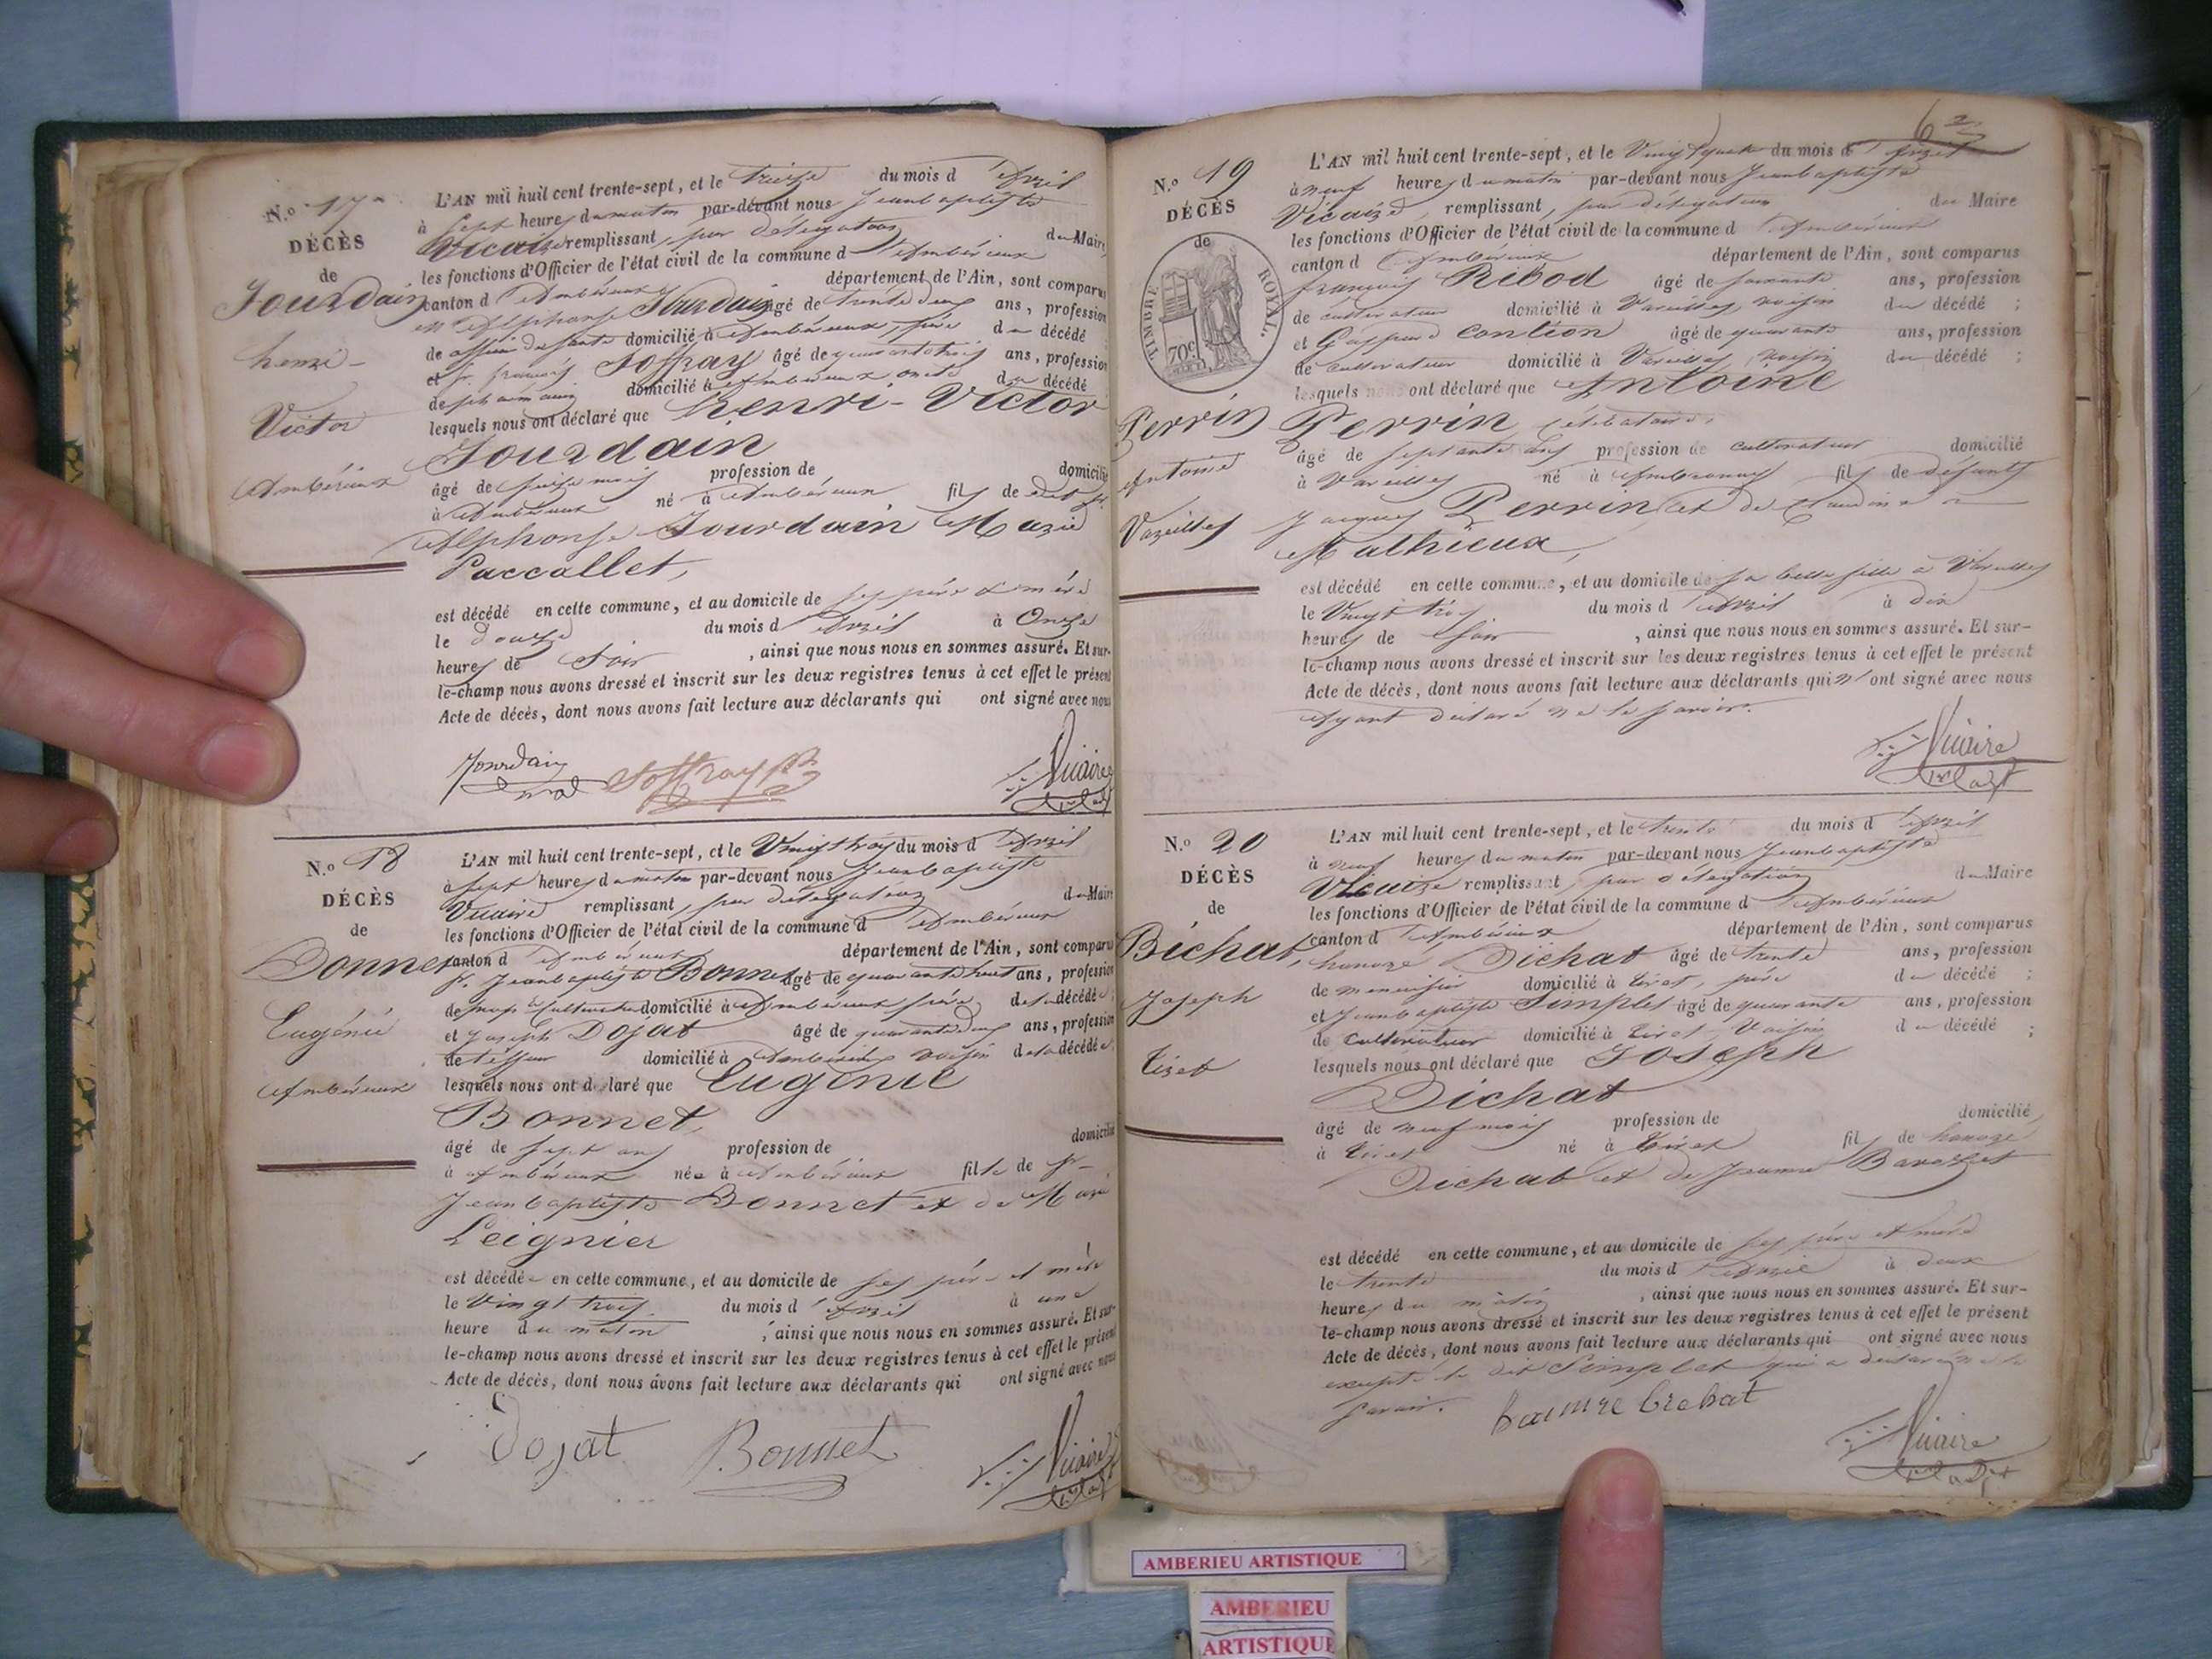 N.o 17
DÉCÈS
de
Jourdain
henri-
Victor
Ambérieux
L'AN mil huit cent trente-sept, et le treize du mois d'Avril
à sept heures du matin par-devant nous Jean baptiste
Vicaire remplissant, par délégation du Maire
les fonctions d'Officier de l'état civil de la commune d'Ambérieux
canton d'Ambérieux département de l'Ain, sont comparus
Alphonse Jourdain âgé de trente deux ans, profession
de officier de santé domicilié à Ambérieux, père du décédé
et françois Joffray âgé de quarante trois ans, profession
de pharmacien domicilié à Ambérieux oncle du décédé
lesquels nous ont déclaré que henri-Victor
Jourdain
âgé de seize mois profession de domicilié
à Ambérieux né à Ambérieux fils de
Alphonse Jourdain Marie
Paccallet,
est décédé en cette commune, et au domicile de ses père & mère
le douze du mois d'Avril à Onze
heures de soir, ainsi que nous nous en sommes assuré. Et sur-
le-champ nous avons dressé et inscrit sur les deux registres tenus à cet effet le présent
Acte de décès, dont nous avons fait lecture aux déclarants qui ont signé avec nous
Jourdain Joffray Vicaire
N.o 18
DÉCÈS
de
Bonnet
Eugénie
Ambérieux
L'AN mil huit cent trente-sept, et le Vingt trois du mois d'Avril
à sept heures du matin par-devant nous Jean baptiste
Vicaire remplissant, par délégation du Maire
les fonctions d'Officier de l'état civil de la commune d'Ambérieux
canton d'Ambérieux département de l'Ain, sont comparus
Sr. Jean baptiste Bonnet âgé de quarante huit ans, profession
de domicilié à Ambérieux père de la décédée
et Joseph Dojat âgé de quarante deux ans, profession
de tisseur domicilié à Ambérieux voisin de la décédée
lesquels nous ont déclaré que Eugénie
Bonnet,
âgé de sept ans profession de domicilié
à Ambérieux née à Ambérieux fille de Sr
Jean baptiste Bonnet et de Marie
Leignier
est décédée en cette commune, et au domicile de ses père et mère
le Vingt trois du mois d'Avril à une
heure du matin, ainsi que nous nous en sommes assuré. Et sur-
le-champ nous avons dressé et inscrit sur les deux registres tenus à cet effet le présent
Acte de décès, dont nous avons fait lecture aux déclarants qui ont signé avec nous
Dojat Bonnet Vicaire
N.o 19
DÉCÈS
de
TIMBRE ROYAL.
70c
Perrin
Antoine
Vareilles
L'AN mil huit cent trente-sept, et le Vingt quatre du mois d'Avril
à neuf heures du matin par-devant nous Jean baptiste
Vicaire, remplissant, par délégation du Maire
les fonctions d'Officier de l'état civil de la commune d'Ambérieux
canton d'Ambérieux département de l'Ain, sont comparus
françois Ribod âgé de soixante ans, profession
de cultivateur domicilié à Vareilles, voisin du décédé ;
et Gaspard Contion âgé de quarante ans, profession
de cultivateur domicilié à Vareilles, voisin du décédé ;
lesquels nous ont déclaré que Antoine
Perrin célibataire,
âgé de septante ans profession de cultivateur domicilié
à Vareilles né à Ambronay fils de défunts
Jacques Perrin et de Claudine
Mathieux,
est décédé en cette commune, et au domicile de sa belle fille à Vareilles
le Vingt trois du mois d'Avril à dix
heures de soir, ainsi que nous nous en sommes assuré. Et sur-
le-champ nous avons dressé et inscrit sur les deux registres tenus à cet effet le présent
Acte de décès, dont nous avons fait lecture aux déclarants qui n'ont signé avec nous
ayant déclaré ne le savoir.
Vicaire
N.o 20
DÉCÈS
de
Bichat,
Joseph
Tiret
L'AN mil huit cent trente-sept, et le trente du mois d'Avril
à neuf heures du matin par-devant nous Jean baptiste
Vicaire remplissant, par délégation du Maire
les fonctions d'Officier de l'état civil de la commune d'Ambérieux
canton d'Ambérieux département de l'Ain, sont comparus
honoré Bichat âgé de trente ans, profession
de menuisier domicilié à tiret, père du décédé ;
et Jean baptiste Simplet âgé de quarante ans, profession
de Cultivateur domicilié à tiret, Voisin du décédé ;
lesquels nous ont déclaré que Joseph
Bichat
âgé de neuf mois profession de domicilié
à tiret né à tiret fils de honoré
Bichat et de Jeanne
est décédé en cette commune, et au domicile de ses père et mère
le trente du mois d'Avril à deux
heures du matin, ainsi que nous nous en sommes assuré. Et sur-
le-champ nous avons dressé et inscrit sur les deux registres tenus à cet effet le présent
Acte de décès, dont nous avons fait lecture aux déclarants qui ont signé avec nous
excepté le dit Simplet qui a déclaré ne le
savoir.
Vicaire
AMBERIEU ARTISTIQUE
AMBERIEU
ARTISTIQUE